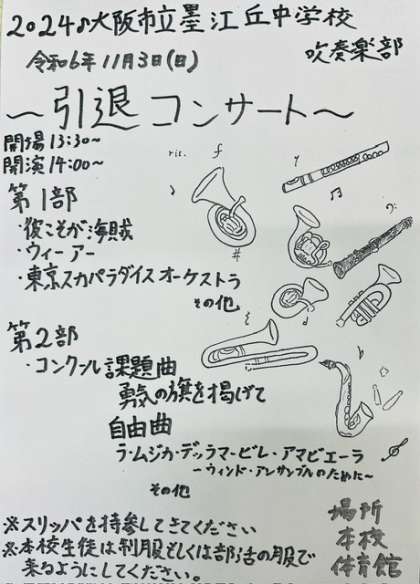 2024♪大阪市立墨江丘中学校
吹奏楽部
令和6年11月3日(日)
〜引退コンサート〜
開場13:30〜
開演14:00〜
第1部
・俺こそが海賊
・ウィーアー
・東京スカパラダイスオーケストラ
その他
第2部
・コンクール課題曲
勇気の旗を掲げて
自由曲
ラ・ムジカ・デッラマ・ビレ・アマビエーラ
〜ウィンド・アンサンブルのために〜
その他
※スリッパを持参してきてください
※本校生徒は制服もしくは部活の服で
来るようにしてください。
場所
本校
体育館
rit.
f